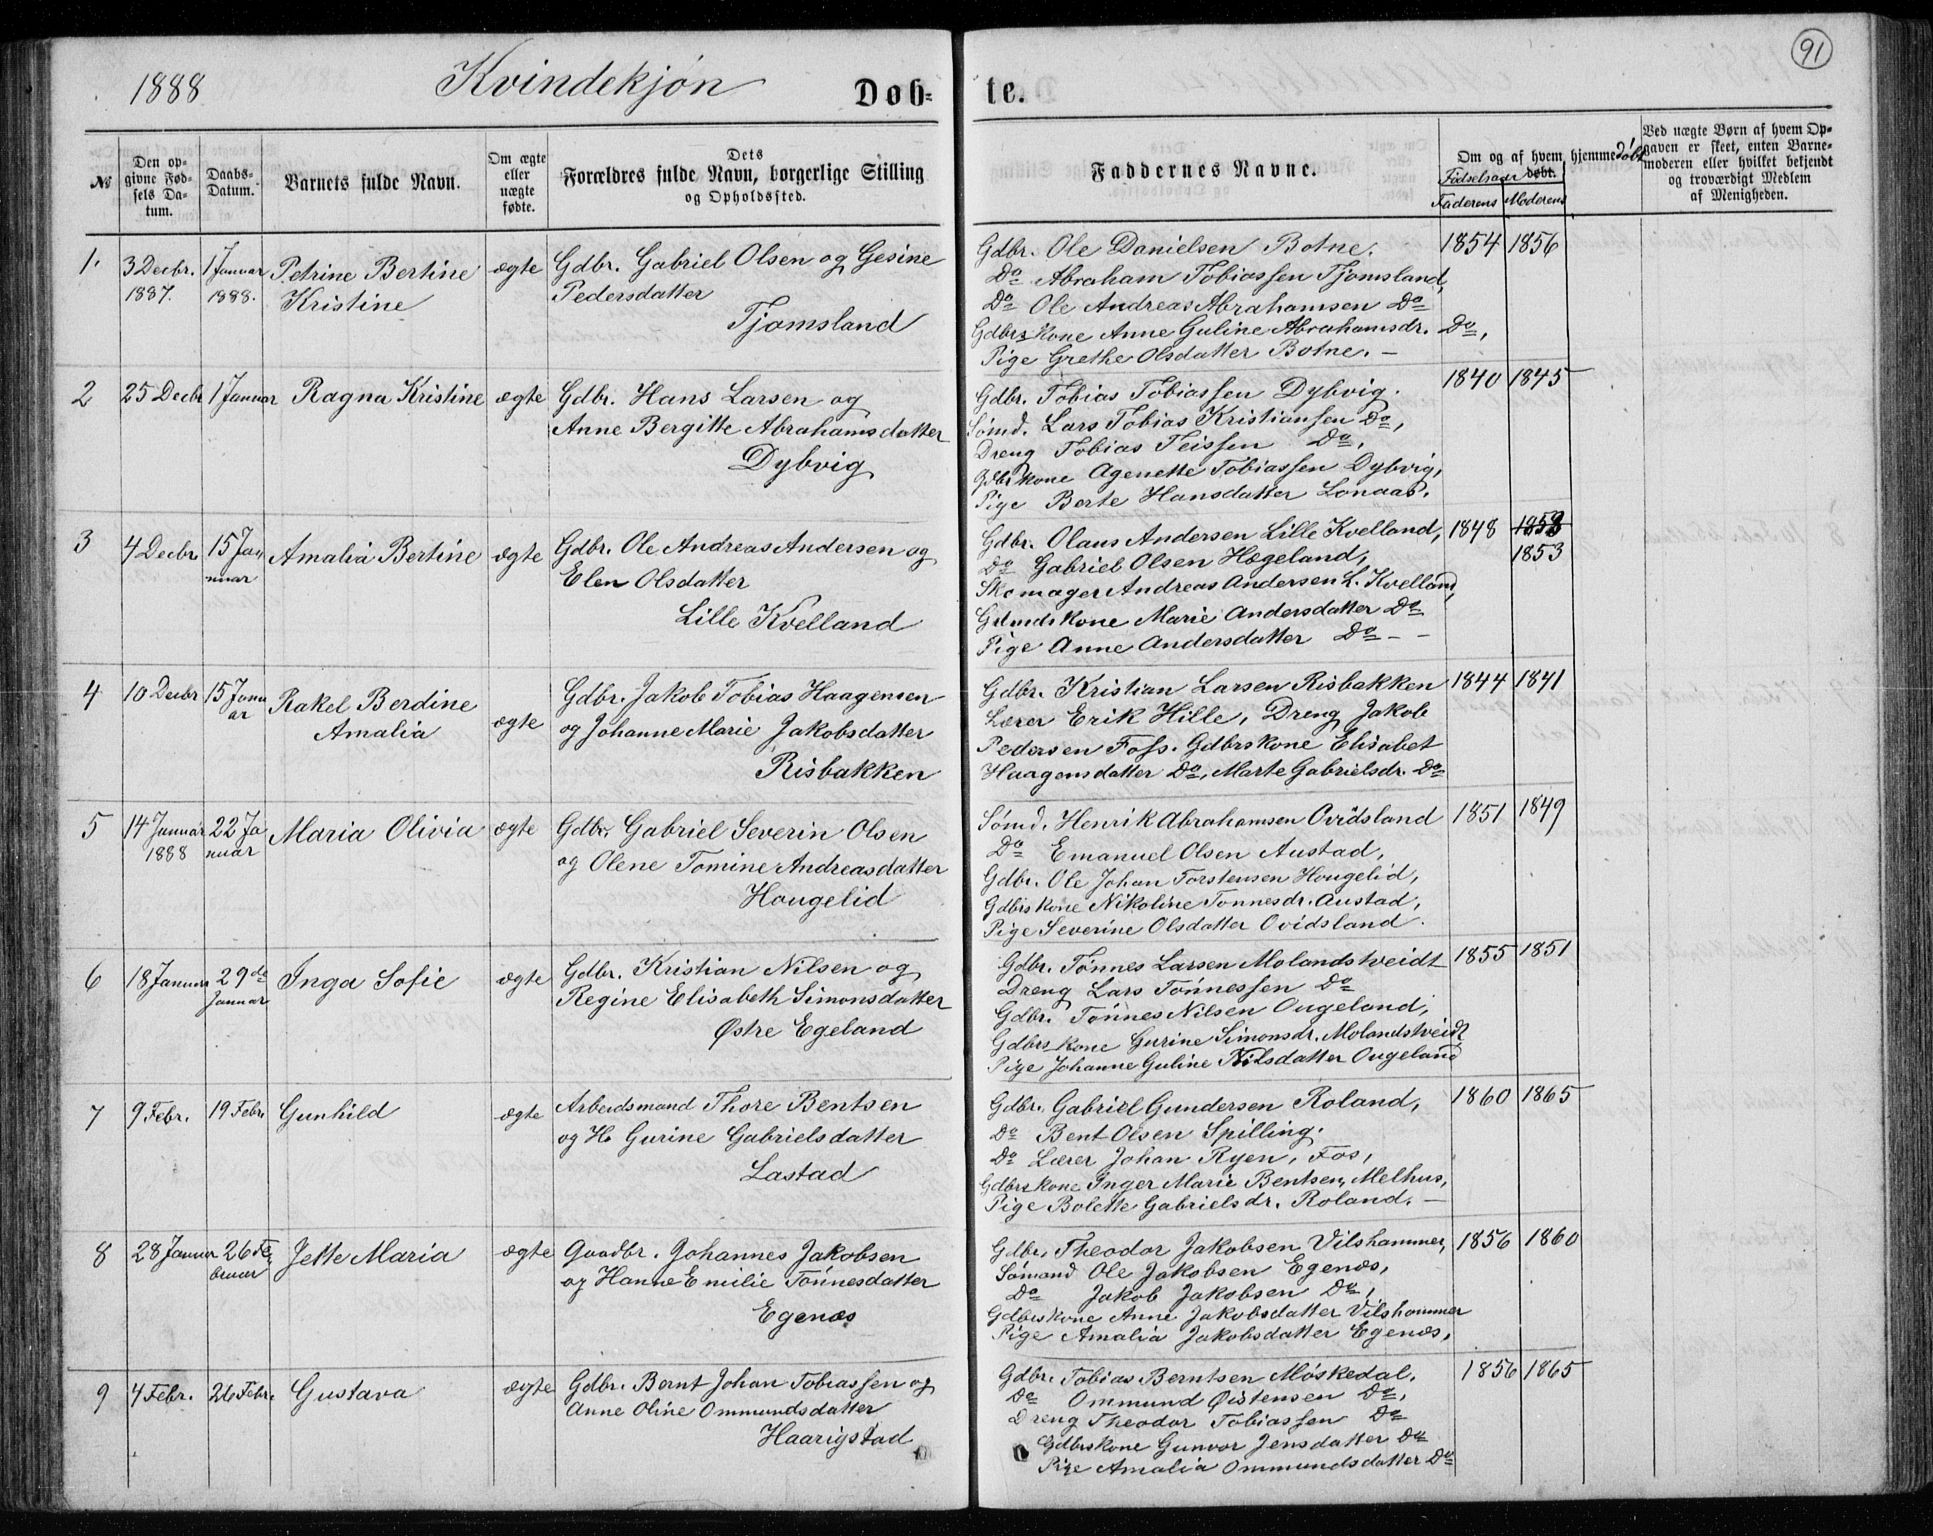 91
1888 Kvindekjøn Døb= te.
№ | Den op= givne Fød= sels Da= tum. | Daabs= Datum. | Barnets fulde Navn. | Om ægte eller uægte fødte. | Dets Forældres fulde Navn, borgerlige Stilling og Opholdssted. | Faddernes Navne. | Om og af hvem hjemmedøbt døbt. Fødselsaar Faderens Moderens | Ved uægte Børn af hvem Op= gaven er skeet, enten Barne= moderen eller hvilket bekjendt og troværdigt Medlem af Menigheden.
1. 3 Decbr. 1887. 1 Januar 1888. Petrine Bertine Kristine ægte
Gdbr. Gabriel Olsen og Gesine
Pedersdatter
Tjomsland
Gdbr. Ole Danielsen Botne. 1854 1856
Do Abraham Tobiassen Tjomsland,
Do Ole Andreas Abrahamsen Do
Gdbrs kone Anne Guline Abrahamsdr. Do,
Pige Grethe Olsdatter Botne. –
2 25 Decbr 1 Januar Ragna Kristine ægte
Gdbr. Hans Larsen og
Anne Bergitte Abrahamsdatter
Dybvig
Gdbr. Tobias Tobiassen Dybvig. 1840 1845
Sømd. Lars Tobias Kristiansen Do,
Dreng Tobias Teissen Do,
Gdbrkone Agenette Tobiassen Dybvig,
Pige Berte Hansdatter Lonaas.
3 4 Decbr 15 Januar Amalia Bertine ægte
Gdbr. Ole Andreas Andersen og
Elen Olsdatter
Lille Kvelland
Gdbr. Olaus Andersen Lille Kvelland, 1848 1853
Do Gabriel Olsen Hægeland,
Skomager Andreas Andersen L. Kvelland,
Gdmdskone Marie Andersdatter Do
Pige Anne Andersdatter Do – –
4 10 Decbr 15 Januar Rakel Berdine Amalia ægte
Gdbr. Jakob Tobias Haagensen
og Johanne Marie Jakobsdatter
Risbakken
Gdbr. Kristian Larsen Risbakken 1844 1841
Lærer Erik Hille, Dreng Jakob
Pedersen Foss. Gdbrskone Elisabet
Haagensdatter Do, Marte Gabrielsdr. Do
5 14 Januar 1888 22 Januar Maria Olivia ægte
Gdbr. Gabriel Severin Olsen
og Olene Tomine Andreasdatter
Hougelid
Sømd. Henrik Abrahamsen Ovidsland 1851 1849
Do Emanuel Olsen Austad,
Gdbr. Ole Johan Torstensen Hougelid,
Gdbrskone Nikoline Tonnesdr. Austad,
Pige Severine Olsdatter Ovidsland.
6 18 Januar 29de Januar Inga Sofie ægte
Gdbr. Kristian Nilsen og
Regine Elisabeth Simonsdatter
Østre Egeland
Gdbr. Tønnes Larsen Molandstveidt 1855 1851
Dreng Lars Tønnessen Do
Gdbr. Tønnes Nilsen Ougeland,
Gdbrs kone Gurine Simonsdr. Molandstveidt
Pige Johanne Guline Nilsdatter Ougeland
7 9 Febr. 19 Febr Gunhild ægte
Arbeidsmand Thore Bentsen
og H. Gurine Gabrielsdatter
Lastad
Gdbr. Gabriel Gundersen Roland, 1860 1865
Do Bent Olsen Spilling.
Do Lærer Johan Ryen, Fos,
Gdbrskone Inger Marie Bentsen, Melhus,
Pige Bolette Gabrielsdr. Roland. –
8 28 Januar 26 Februar Jette Maria ægte
Gaardbr. Johannes Jakobsen
og Hanne Emilie Tønnesdatter
Egenæs
Gdbr. Theodor Jakobsen Vilshammer, 1856 1860
Sømand Ole Jakobsen Egenæs,
Do Jakob Jakobsen Do,
Gdbrskone Anne Jakobsdatter Vilshammer
Pige Amalia Jakobsdatter Egenæs,
9 4 Febr. 26 Febr. Gustava ægte
Gdbr. Bernt Johan Tobiassen og
Anne Oline Ommundsdatter
Haarigstad
Gdbr. Tobias Berntsen Møskedal. 1856 1865
Do Ommund Øistensen Do,
Dreng Theodor Tobiassen Do
Gdbrskone Gunvor Jensdatter Do
Pige Amalia Ommundsdatter Do